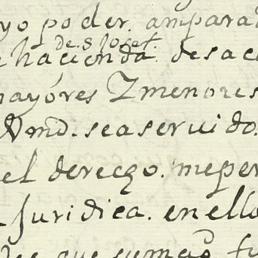 yo poder ampara
de s Josef
hacienda desac
mayóres Y menores
Vmd. sea seruido.
el derecho. me per
Juridica. en ello
que